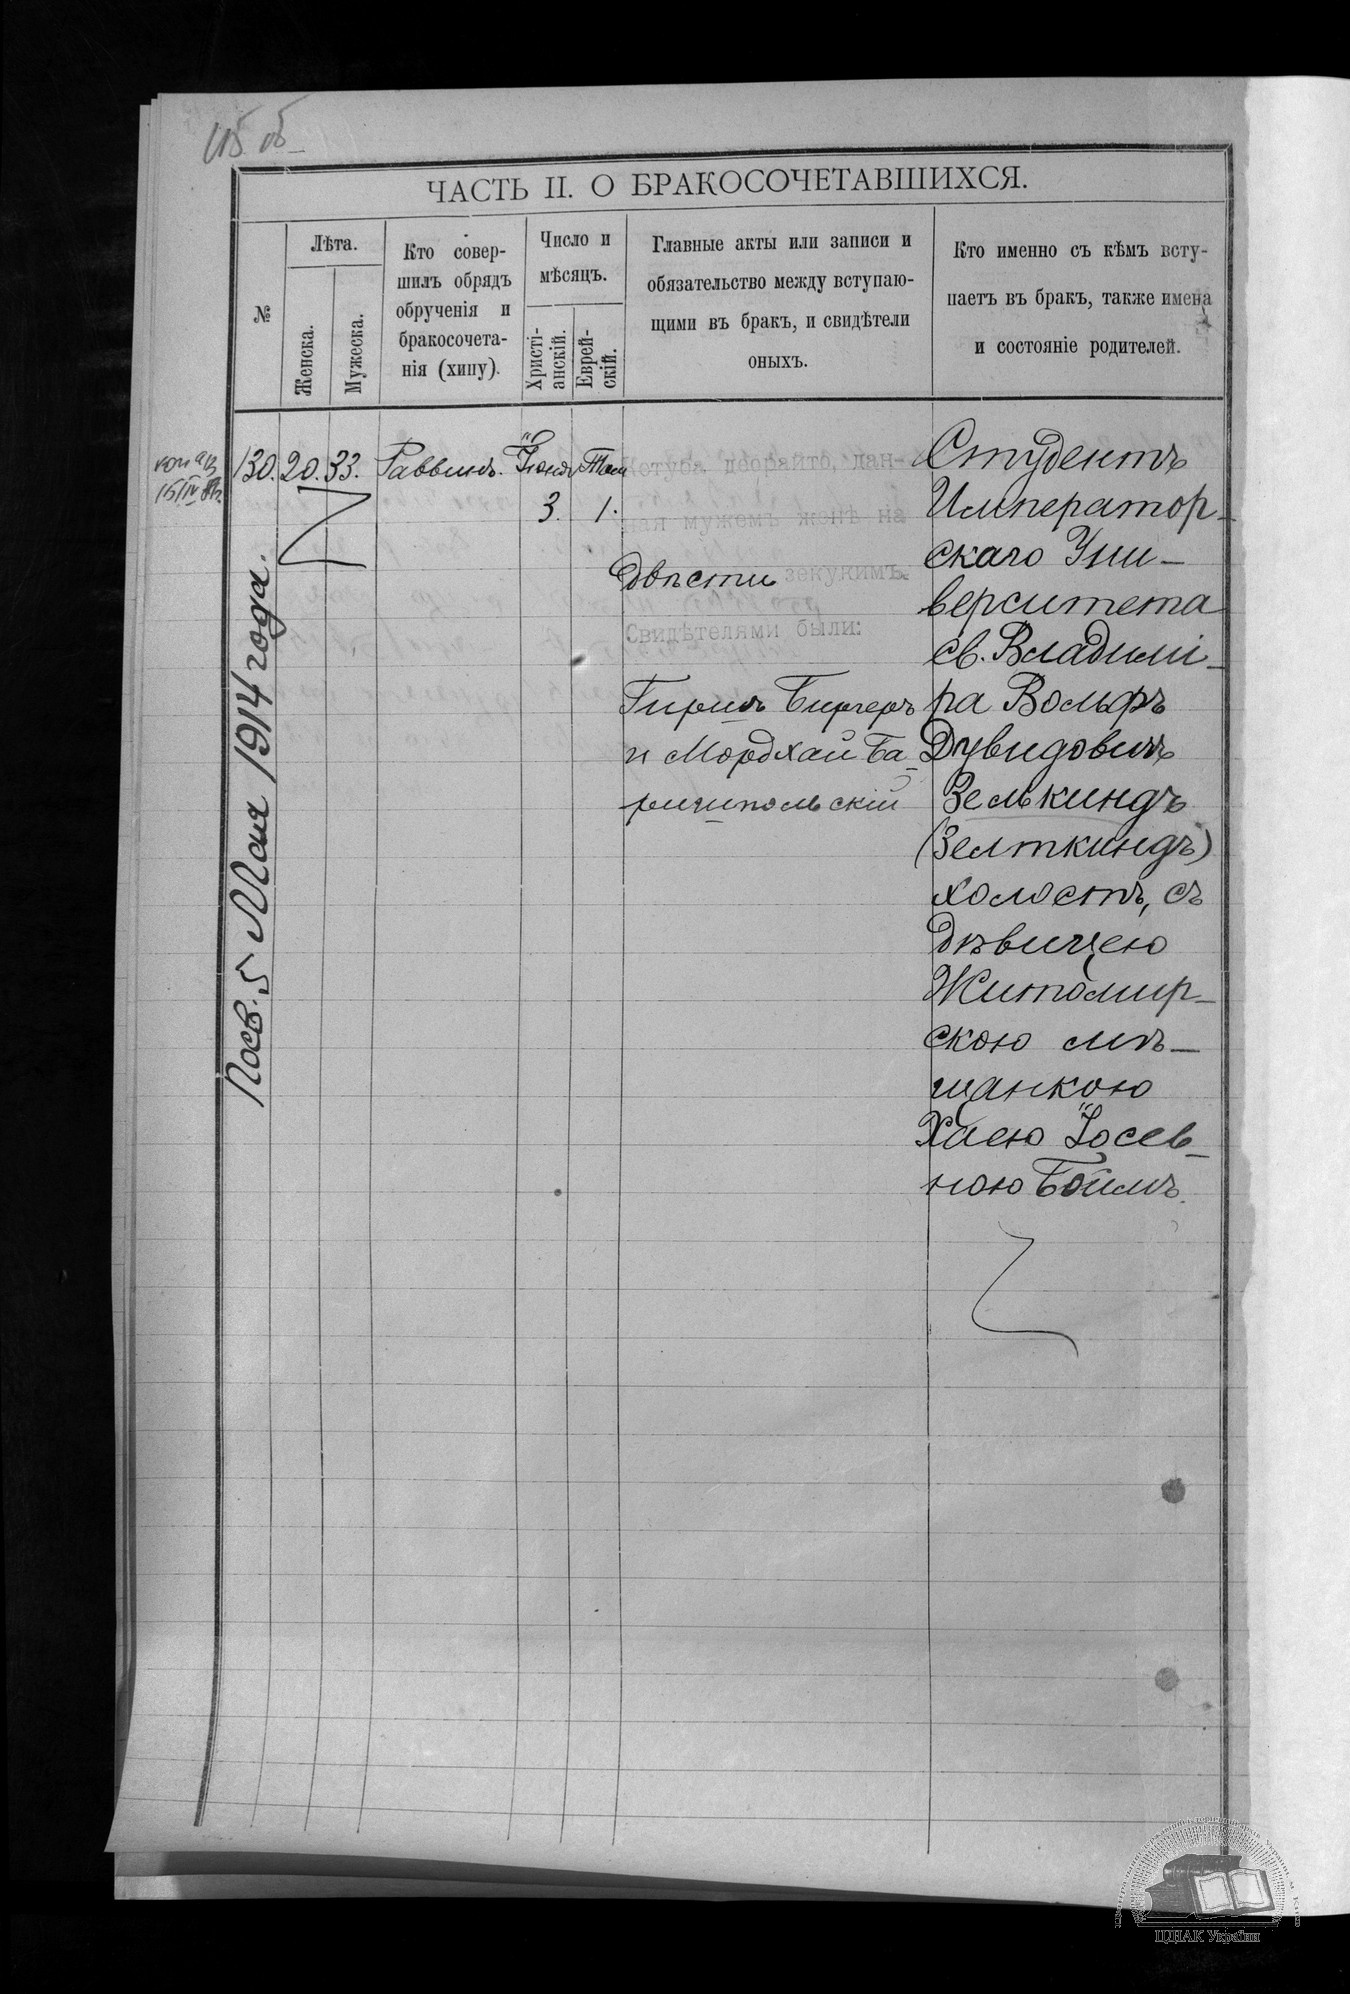 ЧАСТЬ II. О БРАКОСОЧЕТАВШИХСЯ.
№
Лѣта.
Женска.
Мужеска.
Кто совер-
шилъ обрядъ
обрученія и
бракосочета-
нія (хипу).
Число и
мѣсяцъ.
Христі-
анскій.
Еврей-
скій.
Главные акты или записи и
обязательство между вступаю-
щими въ бракъ, и свидѣтели
оныхъ.
Кто именно съ кѣмъ всту-
паетъ въ бракъ, также имена
и состояніе родителей.
130. 20. 33. Раввинъ. Іюня
3. 1.
Кетуба деорайто, дан-
ная мужемъ женѣ на
двѣсти зекукимъ.
Свидѣтелями были:
Бергеръ
и Мордхай Ба-
ришпольскій
Студентъ
Император-
скаго Уни-
верситета
св. Владимі-
ра Вольфъ
Дувидовичъ
Зелькиндъ
(Зелткиндъ)
холостъ, съ
дѣвицею
Житомир-
скою мѣ-
щанкою
Хаею Іосев-
ною Боймъ.
5 Мая 1914 года.
ЦДІАК України